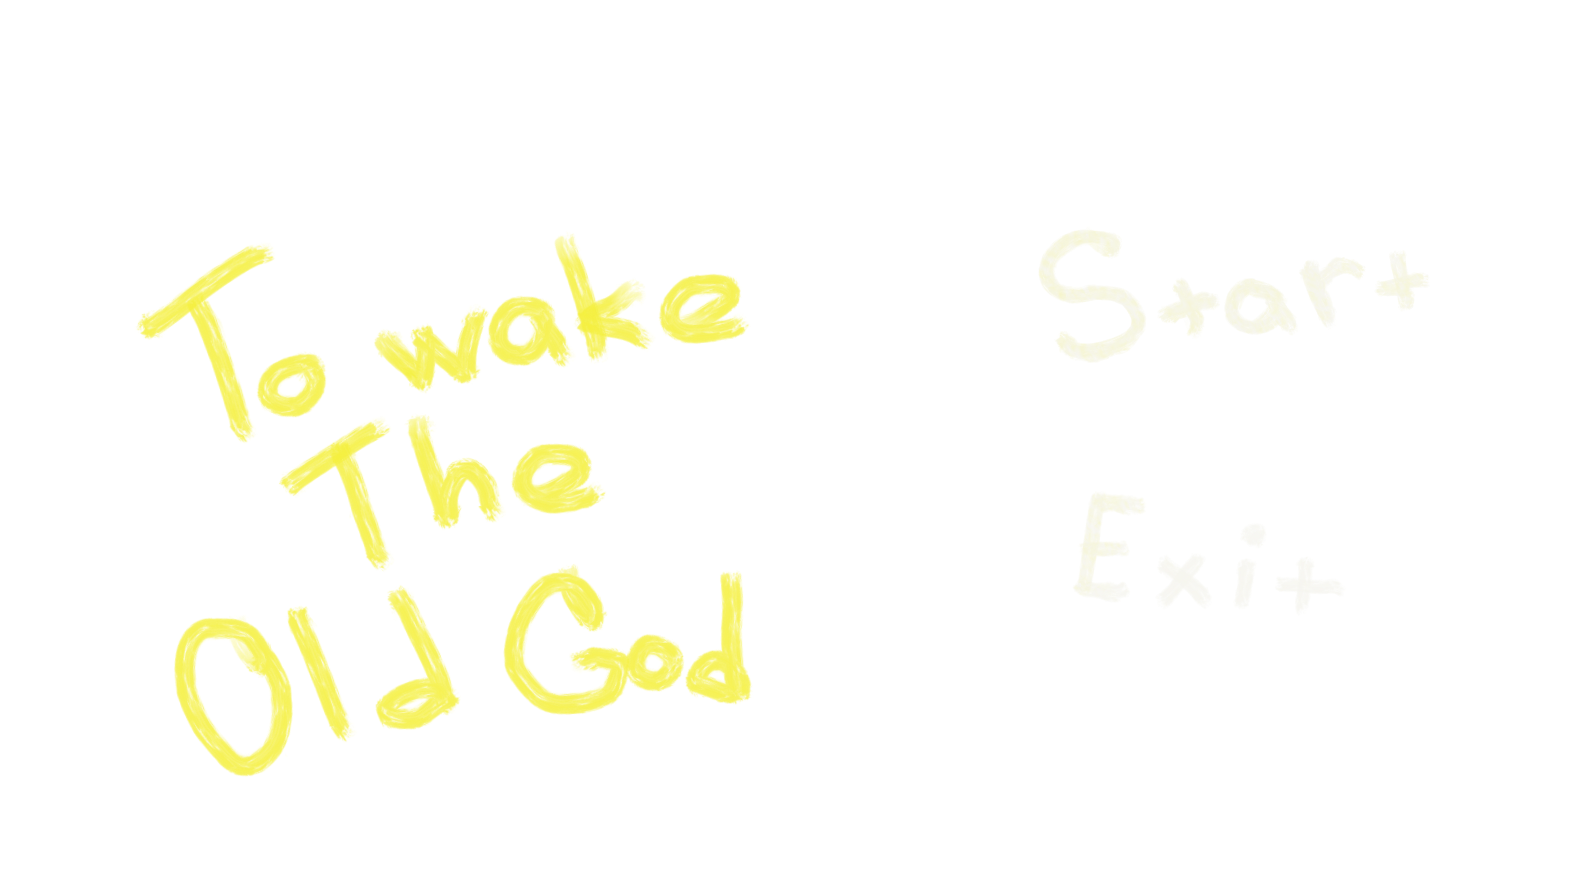 To wake
The
Old God
Start
Exit